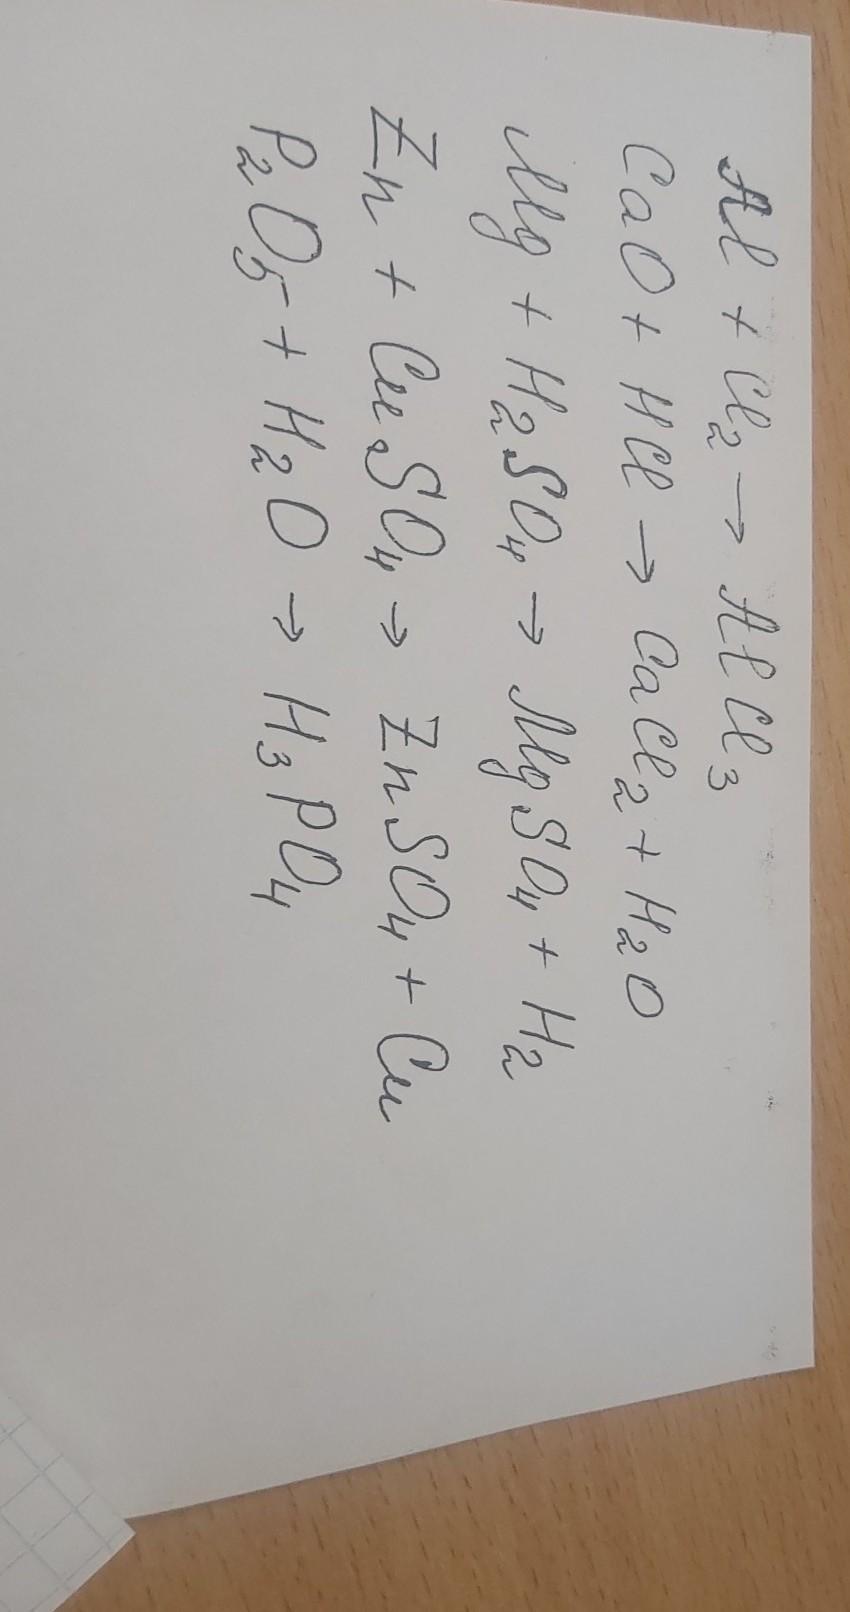 Al + Cl₂ → AlCl₃
CaO + HCl → CaCl₂ + H₂O
Mg + H₂SO₄ → MgSO₄ + H₂
Zn + CuSO₄ → ZnSO₄ + Cu
P₂O₅ + H₂O → H₃PO₄